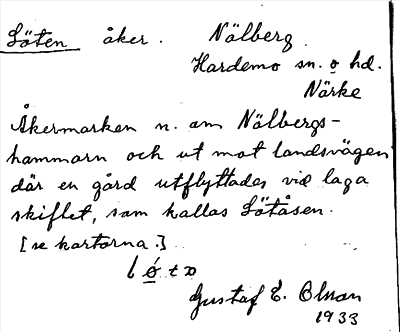 Löten åker. Nälberg
Hardemo sn. o hd.
Närke
Åkermarken n. om Nälbergs-
hammarn och ut mot landsvägen
där en gård utflyttades vid laga
skiftet, som kallas Lötåsen.
[se kartorna.]
Gustaf E. Olsson
1933